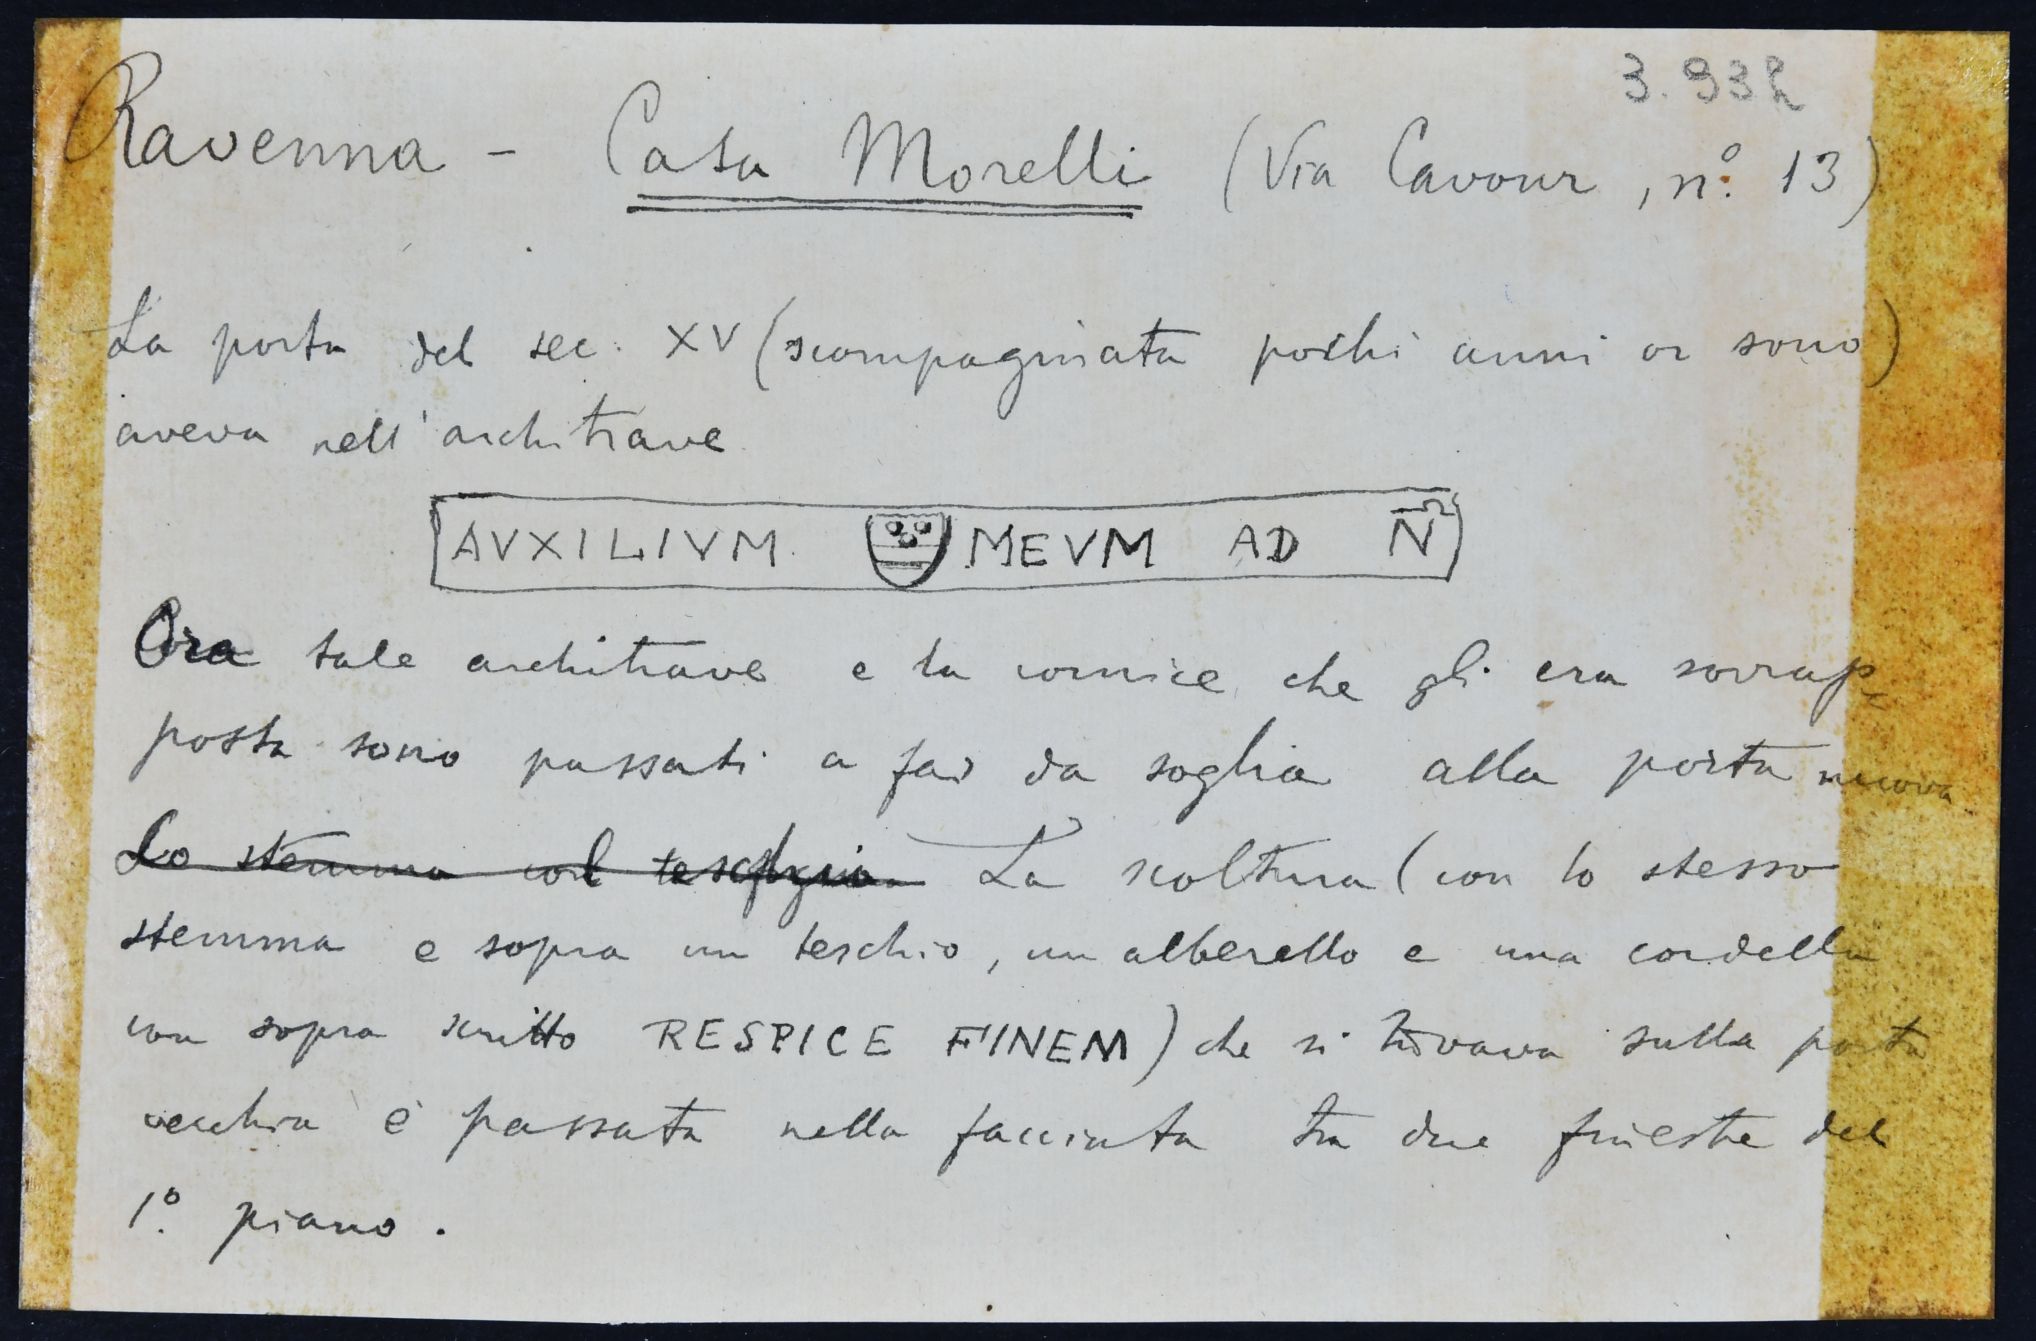 3.932
Ravenna - Casa Morelli (Via Cavour, nº. 13)
La porta del sec. XV (scompaginata pochi anni or sono)
aveva nell'architrave
AVXILIVM MEVM AD N̅
Ora tale architrave e la cornice che gli era sovrap=
posta sono passati a far da soglia alla porta nuova.
Lo stemma col teschio La scoltura (con lo stesso
stemma e sopra un teschio, un alberello e una cordella
con sopra scritto RESPICE FINEM) che si trovava sulla porta
vecchia è passata nella facciata tra due finestre del
1º. piano.